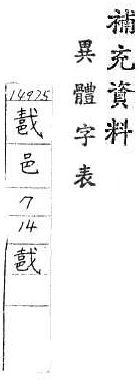 補充資料
異體字表
14975
邑
7
14